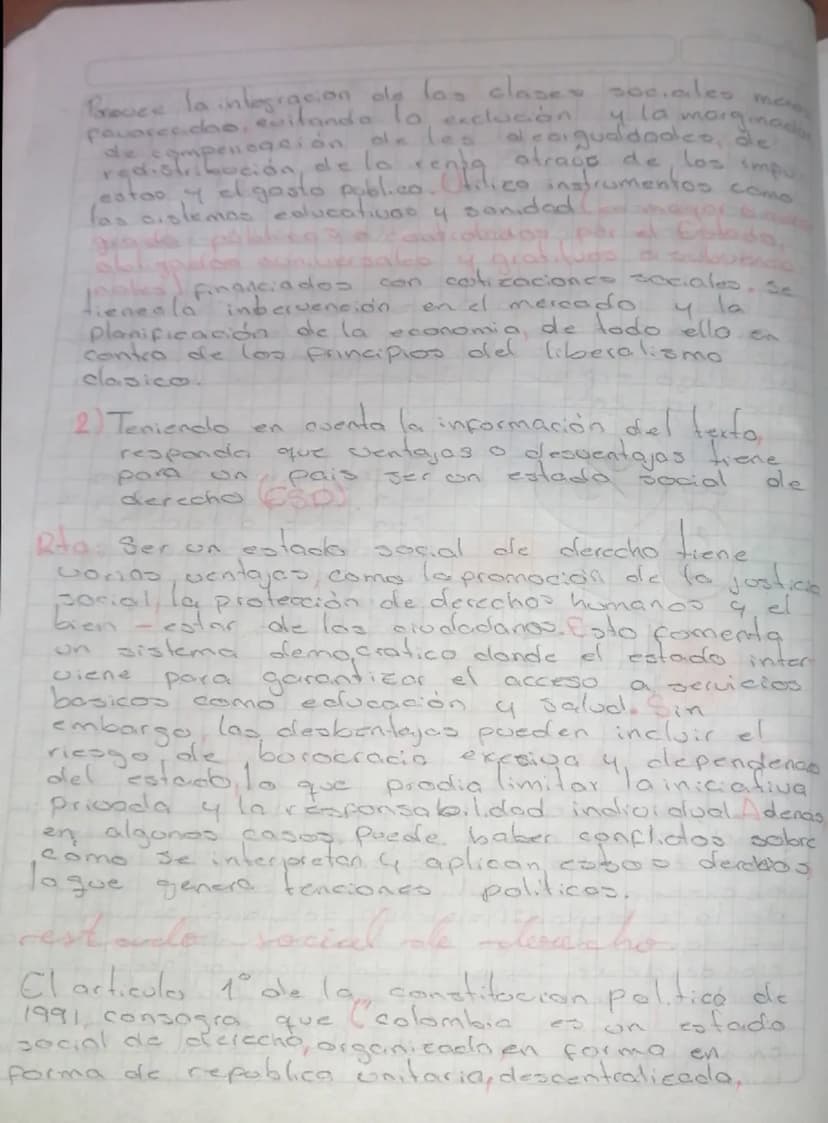 Provee la integracion de las clases sociales menos
favorecidas, evitando la exclución y la marginación
de compensación de las desigualdades, de
redistribución de la renta atraves de los impu
estos y el gasto publico. Utilica instrumentos como
los sistemas educativos y sanidad
por el Estado,
y gratitud
financiados con cotizaciones sociales. Se
tiene la intervención en el mercado y la
planificación de la economia, de todo ello en
contra de los principios del liberalismo
clasico.
2) Teniendo en cuenta la información del texto,
responda que ventajas o desventajas tiene
para un pais ser un estado social de
derecho (ESD)
Rta: Ser un estado social de derecho tiene
varias ventajas, como la promoción de la justicia
social, la protección de derechos humanos y el
bien-estar de los ciudadanos. Esto fomenta
un sistema democratico donde el estado inter
viene para garantizar el acceso a servicios
basicos como educación y salud. Sin
embargo, las desbentajas pueden incluir el
riesgo de borocracia excesiva y dependencia
del estado, lo que prodia limitar la iniciativa
privada y la responsabilidad individual. Ademas
en algunos casos, puede haber conflictos sobre
como se interpretan y aplican estos derechos
loque genera tenciones politicas.
estado social de derecho
El articulo 1° de la constitucion politica de
1991, consagra que "colombia es un estado
social de derecho, organizado en forma en
forma de republica unitaria, descentralizada,